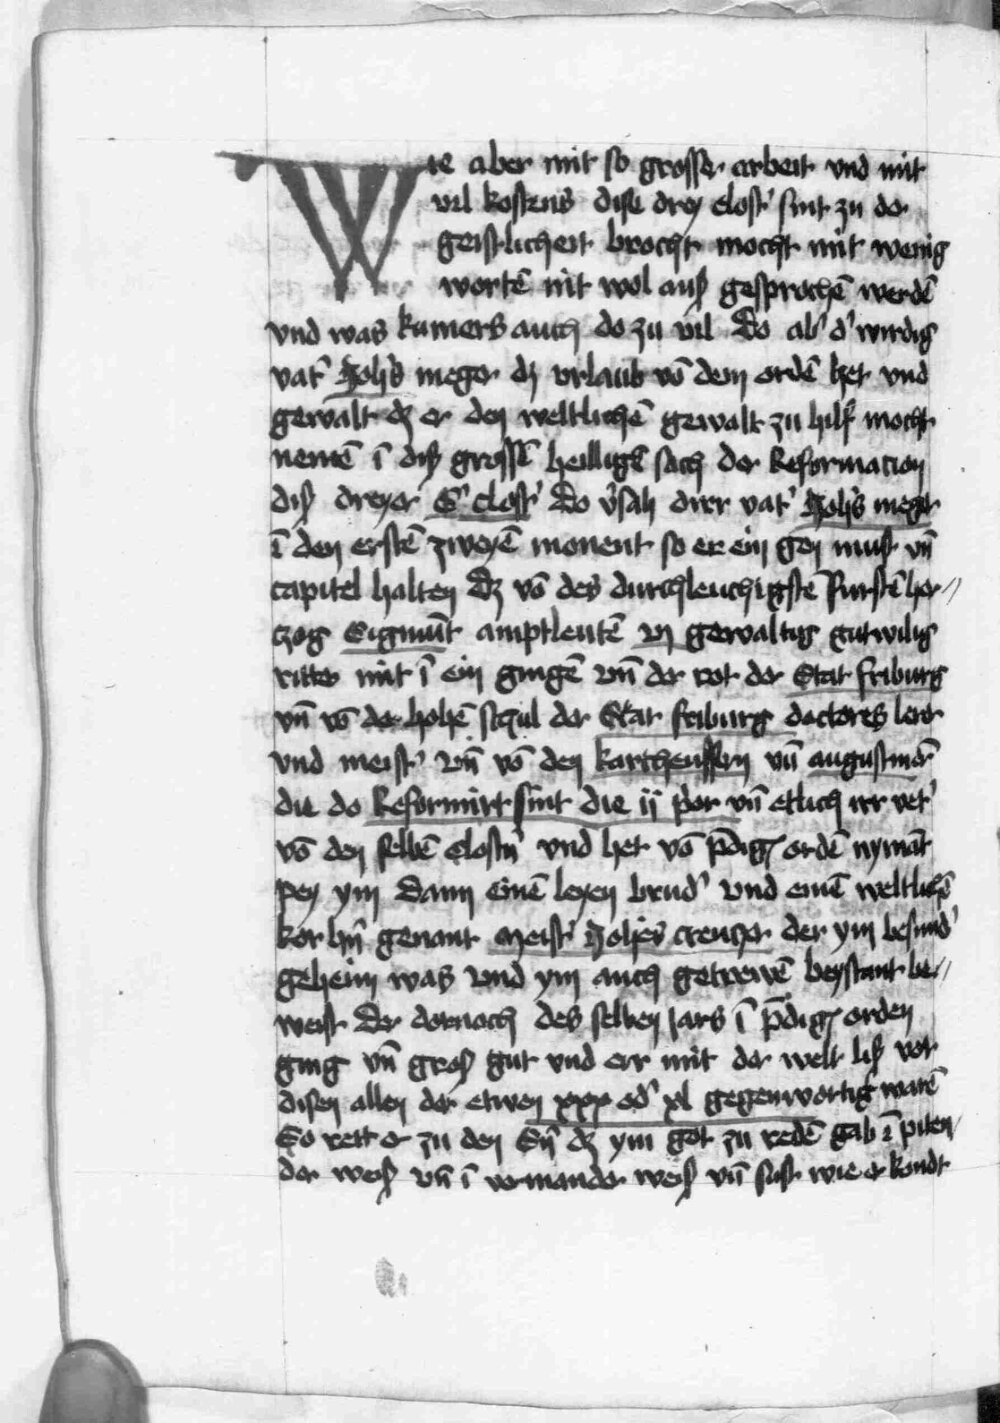 Wie aber mit so grosser arbeit vnd mit
vil kostens dise drey clost' sint zu der
geistlicheit brocht mocht mit wenig
wortē nit wol auß gesprochē werdē
vnd was kumers auch do zu vil Do ab' d' wirdig
vat' Joh's meger dz vrlaub vō dem ordē het vnd
gewalt dz er den weltlichē gewalt zu hilf mocht
nemē ī diß grossē heilligē sach der Reformacion
diß dreyer S' closť Do v'sah vat' Joh's meger
ī den erstē zweyē monent so er ein gen must vn̄
capitel halten Dz vō des durchleuchigstē Furstē her⸗
czog Sigmūt amptleutē vn gewaltig gutwilig
ritter mit ī ein gingē vn̄ der rot der Stat friburg
vn̄ vō der hohē schul der Stat friburg doctores lerer
vnd meist' vn̄ vō den kartheussern vn̄ augustiner
die do Reformirt sint die ij p'or vn̄ etlich irr vet'
vō den selbē clostn̄ vnd het vō p̄dig' ordē nymāt
pey ym Dann einē leyen brud' vnd einē weltlichē
kor hn̄ genant Meist' Joh̄es creuczer der ym besund'
geheim was vnd ym auch getrewē beystant be⸗
weist Der dornoch des selben jars ī p̄dig' orden
ging vn̄ groß gut vnd err mit der welt liß vor
disen allen der etwen xxx od' xl gegenwortig warē
So rett er zu den Sn̄ dz ym got zu redē gab ī piten⸗
der weiß vn̄ ī vermander weiß vn̄ sust wie er kondt